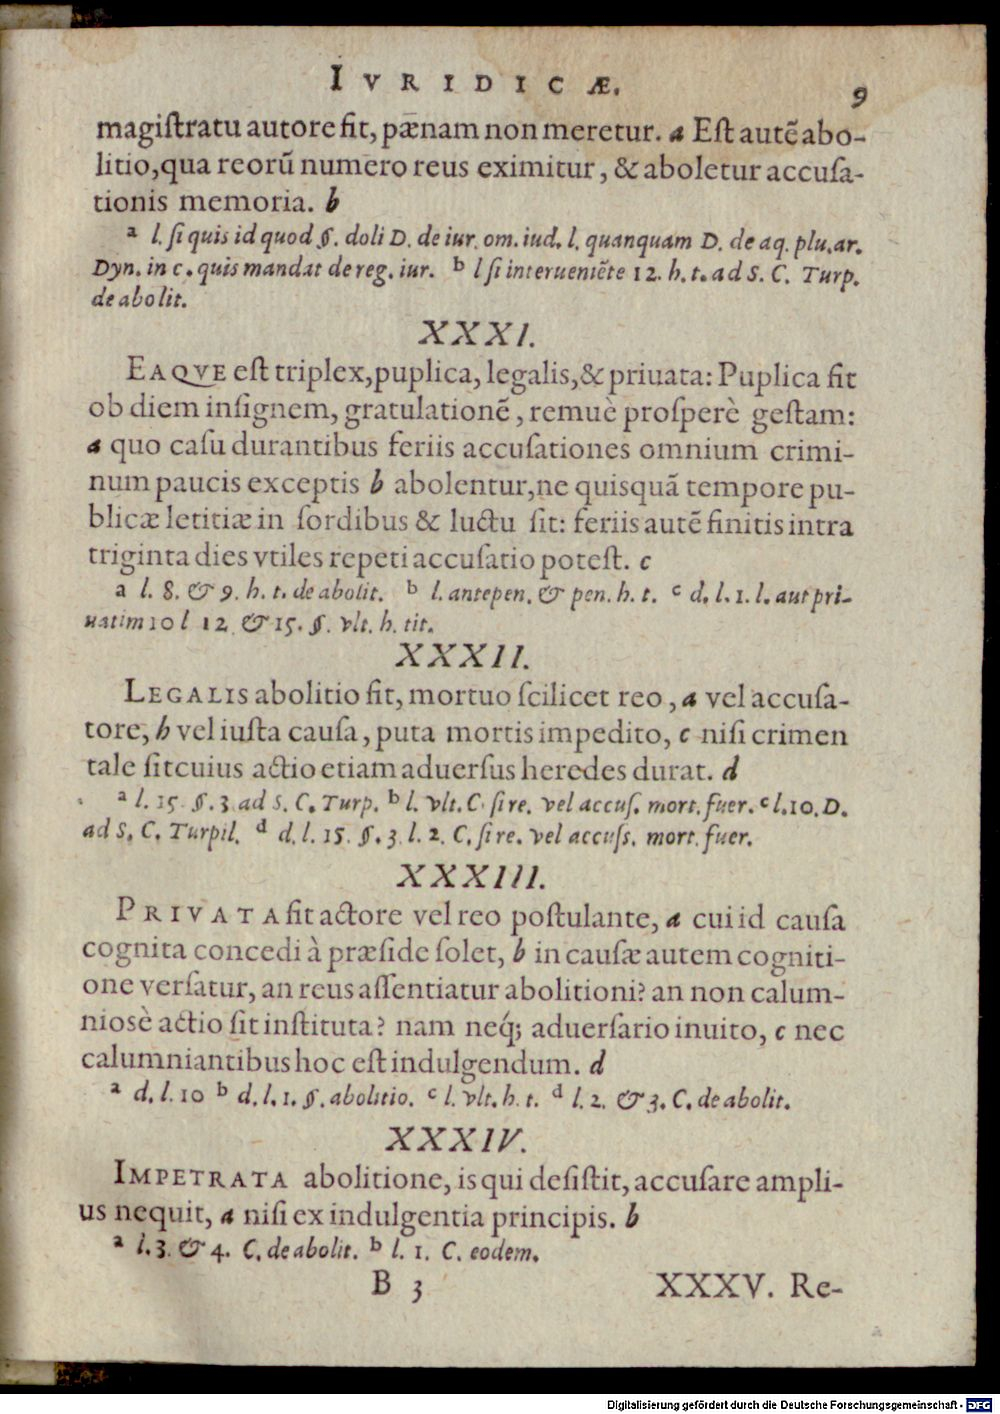 IVRIDICÆ. 9
magiſtratu autore fit, pænam non meretur. a Eſt autẽ abo-
litio, qua reorũ numero reus eximitur, & aboletur accuſa-
tionis memoria. b
a l. ſi quis id quod §. doli D. de iur. om. iud. l. quanquam D. de aq. plu. ar.
Dyn. in c. quis mandat de reg. iur. b l ſi interueniẽte 12. h. t. ad S. C. Turp.
de abolit.
XXXI.
EAQVE eſt triplex, puplica, legalis, & priuata: Puplica fit
ob diem inſignem, gratulationẽ, remuè proſperè geſtam:
a quo caſu durantibus feriis accuſationes omnium crimi-
num paucis exceptis b abolentur, ne quisquã tempore pu-
blicæ letitiæ in ſordibus & luctu ſit: feriis autẽ finitis intra
triginta dies vtiles repeti accuſatio poteſt. c
a l. 8. & 9. h. t. de abolit. b l. antepen. & pen. h. t. c d. l. 1. l. aut pri-
uatim 10 l 12. & 15. §. vlt. h. tit.
XXXII.
LEGALIS abolitio fit, mortuo ſcilicet reo, a vel accuſa-
tore, b vel iuſta cauſa, puta mortis impedito, c niſi crimen
tale ſit cuius actio etiam aduerſus heredes durat. d
a l. 15. §. 3. ad S. C. Turp. b l. vlt. C. ſi re. vel accuſ. mort. fuer. c l. 10. D.
ad S. C. Turpil. d d. l. 15. §. 3. l. 2. C. ſi re. vel accuſſ. mort. fuer.
XXXIII.
PRIVATA fit actore vel reo poſtulante, a cui id cauſa
cognita concedi à præſide ſolet, b in cauſæ autem cogniti-
one verſatur, an reus aſſentiatur abolitioni? an non calum-
niosè actio ſit inſtituta? nam neq́; aduerſario inuito, c nec
calumniantibus hoc eſt indulgendum. d
a d. l. 10 b d. l. 1. §. abolitio. c l. vlt. h. t. d l. 2. & 3. C. de abolit.
XXXIV.
IMPETRATA abolitione, is qui deſiſtit, accuſare ampli-
us nequit, a niſi ex indulgentia principis. b
a l. 3. & 4. C. de abolit. b l. 1. C. eodem.
B 3 XXXV. Re-
Digitalisierung gefördert durch die Deutsche Forschungsgemeinschaft - DFG